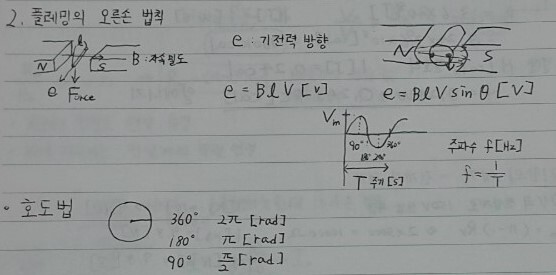 2. 플레밍의 오른손 법칙
e : 기전력 방향
N S B : 자속 밀도
e Force
N S
e = B l V [V]
e = B l V sin θ [V]
Vm
90° 180° 270° 360°
T 주기 [s]
주파수 f [Hz]
f = 1/T
• 호도법
360° 2π [rad]
180° π [rad]
90° π/2 [rad]